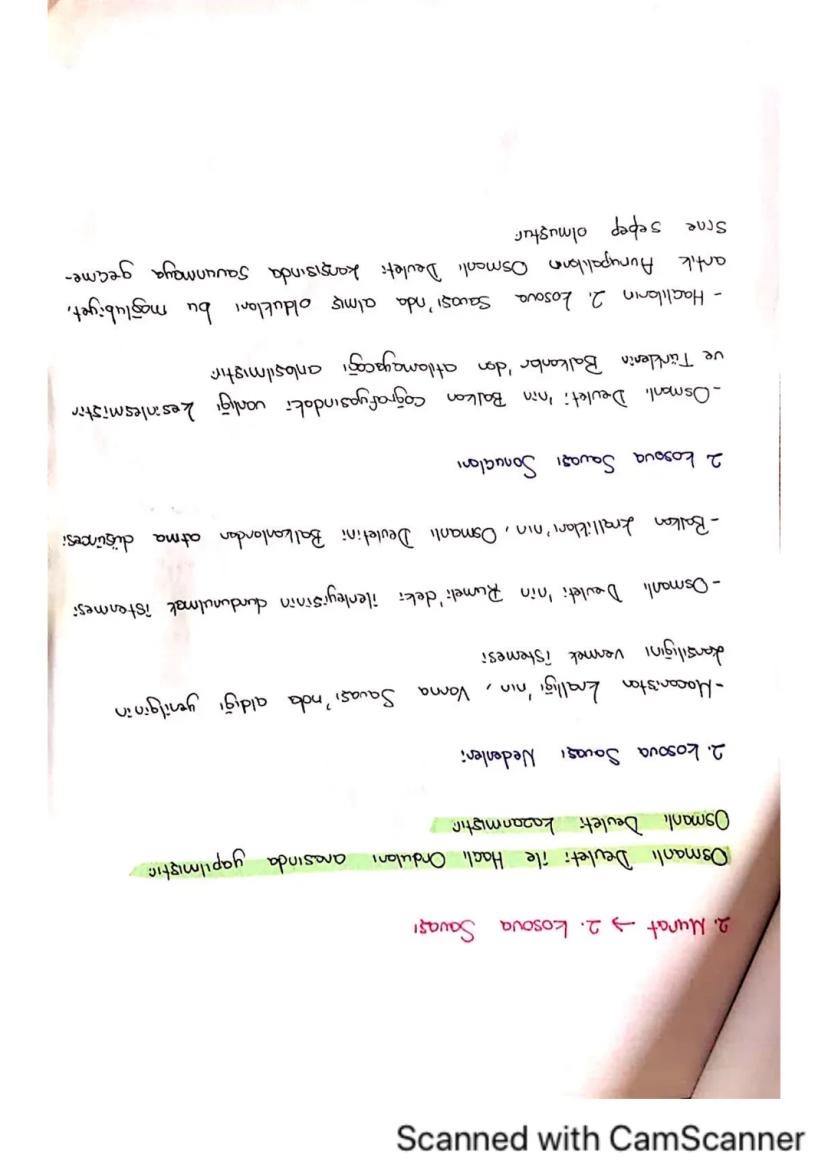 2. Murat → 2. Kosova Savaşı
Osmanlı Devleti ile Haçlı Orduları arasında yapılmıştır
Osmanlı Devleti kazanmıştır
2. Kosova Savaşı Nedenleri
-Macaristan Krallığı'nın, Varna Savaşı'nda aldığı yenilginin
karşılığını vermek istemesi
-Osmanlı Devleti'nin Rumeli'deki ilerleyişinin durdurulmak istenmesi
-Balkan Krallıkları'nın, Osmanlı Devletini Balkanlardan atma düşüncesi
2. Kosova Savaşı Sonuçları
-Osmanlı Devleti'nin Balkan coğrafyasındaki varlığı kesinleşmiştir
ve Türklerin Balkanlar'dan atılamayacağı anlaşılmıştır
- Haçlıların 2. Kosova Savaşı'nda almış oldukları bu mağlubiyet,
artık Avrupalıların Osmanlı Devleti karşısında savunmaya geçme-
sine sepep olmuştur
Scanned with CamScanner